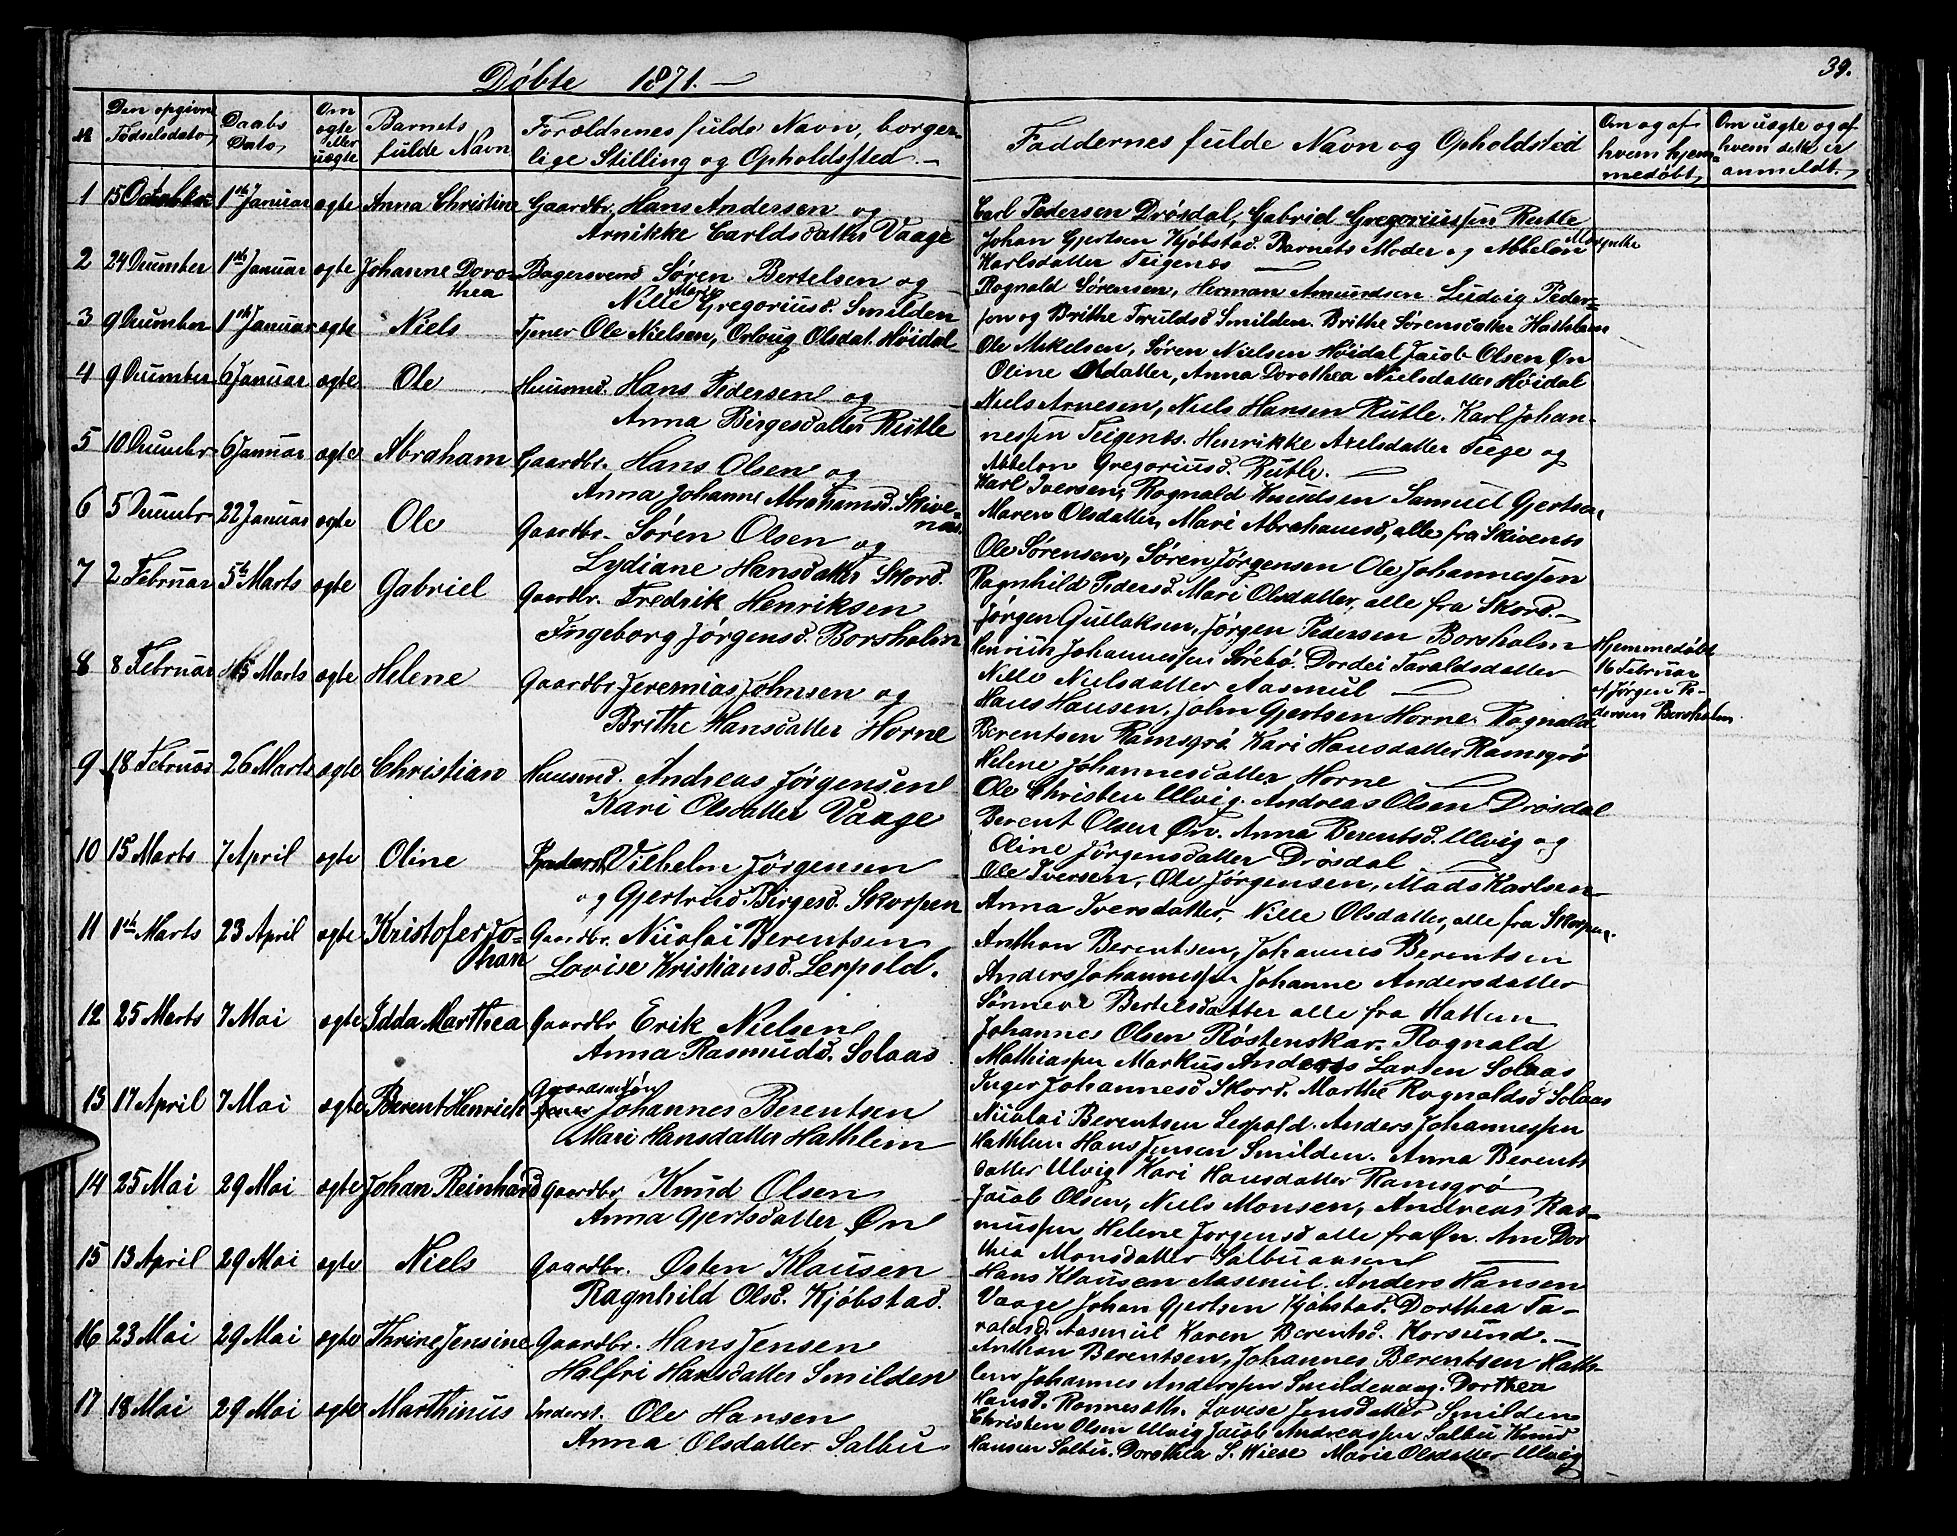 Døbte 1871.
39.
№
Den opgivne Fødselsdato
Daabs Dato
Om ægte eller uægte
Barnets fulde Navn
Forældrenes fulde Navn, borger-
lige Stilling og Opholdssted.
Faddernes fulde Navn og Opholdsted
Om og af hvem hjem-medøbt
Om uægte og af hvem dette er anmeldt.
1 15 October 1ste Januar ægte Anna Christine Gaardbr. Hans Andersen og
Arnikke Carldsdatter Vaage
Carl Pedersen Drøsdal, Gabriel Gregoriussen Rutle
Johan Gjertsen Kjøbstad. Barnets Moder og Abbelon Margrethe
Karlsdatter Teigenæs
2 24 December 1ste Januar ægte Johanne Doro-
thea
Bagersvend Søren Bertelsen og
Nille Marie Gregoriusd. Smilden
Rognald Sørensen, Herman Amundsen. Ludvig Peder-
sen og Brithe Truldsd Smilden. Brithe Sørensdatter Hathlem
3 9 December 1ste Januar ægte Niels Tjener Ole Nielsen, Orloug Olsdat. Høidal
Ole Mikelsen, Søren Nielsen Høidal Jacob Olsen Øn
Oline Olsdatter, Anna Dorothea Nielsdatter Høidal
4 9 December 6 Januar ægte Ole Huusmd. Hans Pedersen og
Anna Birgesdatter Rutle
Niels Arnesen, Niels Hansen Rutle. Karl Johan-
nessen Teigenæs. Henrikke Axelsdatter Teige og
Abbelon Gregoriusd. Rutle.
5 10 Decembr 6 Januar ægte Abraham Gaardbr. Hans Olsen og
Anna Johanne Abrahamsd. Skive-
næs
Karl Iversen, Rognald Knudsen Samuel Gjertsen
Maren Olsdatter, Mari Abrahamsd, alle fra Skivenæs
6 5 Decembr 22 Januar ægte Ole Gaardbr. Søren Olsen og
Lydiane Hansdatter Skord.
Ole Sørensen, Søren Jørgensen Ole Johannessen
Ragnhild Pedersd. Mari Olsdatter, alle fra Skord.
7 2 Februar 5te Marts ægte Gabriel Gaardbr. Fredrik Henriksen
Ingeborg Jørgensd. Borsholm
Jørgen Gullaksen, Jørgen Pedersen Borsholm
Henrich Johannessen Sørebø. Dordei Taraldsdatter
Nille Nielsdatter Aasmul
Hjemmedøbt
16 Februar
af Jørgen Pe-
dersen Borsholm
8 8 Februar 15 Marts ægte Helene Gaardbr Jeremias Johnsen og
Brithe Hansdatter Horne
Hans Hansen, John Gjertsen Horne. Rognald
Berentsen Ramsgrø Kari Hansdatter Ramsgrø
Helene Johannesdatter Horne
9 18 Februar 26 Marts ægte Christian Huusmd. Andreas Jørgensen
Kari Olsdatter Vaage
Ole Christen Ulvig. Andreas Olsen Drøsdal
Berent Olsen Øn. Anna Berentsd. Ulvig og
Oline Jørgensdatter Drøsdal
10 15 Marts 7 April ægte Oline Inderst Vilhelm Jørgensen
og Gjertrud Birgesd. Skorpen
Ole Iversen, Ole Jørgensen, Mads Karlsen
Anna Iversdatter, Nille Olsdatter, alle fra Skorpen.
11 1ste Marts 23 April ægte Kristofer Jo-
han
Gaardbr. Nicolai Berentsen
Lovise Kristiansd. Lerpold.
Anthon Berentsen, Johannes Berentsen
Anders Johannessen Johanne Andersdatter
Sønneve Bertelsdatter alle fra Hatlem
12 25 Marts 7 Mai ægte Idda Marthea Gaardbr Erik Nielsen
Anna Rasmusd. Solaas
Johannes Olsen Røstenskar. Rognald
Mathiassen Markus Anders Larsen Solaas
Inger Johannesd Skord. Marthe Rognaldsd Solaas
13 17 April 7 Mai ægte Berent Henrich Gaardmdsøn
Johannes Berentsen
Mari Hansdatter Hathlem
Nicolai Berentsen Lerpold. Anders Johannessen
Hathlem Hans Jensen Smilden. Anna Berents
datter Ulvig Kari Hansdatter Ramsgrø
14 25 Mai 29 Mai ægte Johan Reinhard Gaardbr Knud Olsen
Anna Gjertsdatter Øn
Jacob Olsen, Niels Monsen, Andreas Ras-
mussen Helene Jørgensd alle fra Øn. Ane Dor
thea Monsdatter Salbuansen
15 13 April 29 Mai ægte Niels Gaardbr. Østen Klausen
Ragnhild Olsd. Kjøbstad.
Hans Klausen Aasmul. Anders Hansen
Vaage Johan Gjertsen Kjøbstad. Dorthea Ta-
raldsd. Aasmul Karen Berentsd. Korsund.
16 23 Mai 29 Mai ægte Thrine Jensine Gaardbr. Hans Jensen
Halfri Hansdatter Smilden
Anthon Berentsen, Johannes Berentsen Hath-
lem Johannes Anderssen Smildevaag. Dorthea
Hansd. Rønnesæth. Lovise Jensdatter Smilden
17 18 Mai 29 Mai ægte Marthinus Inderst. Ole Hansen
Anna Olsdatter Salbu
Christen Olsen Ulvig Jacob Andreassen Salbu Knud
Hansen Salbu. Dorothea S. Wiese Marie Olsdatter Ulvig